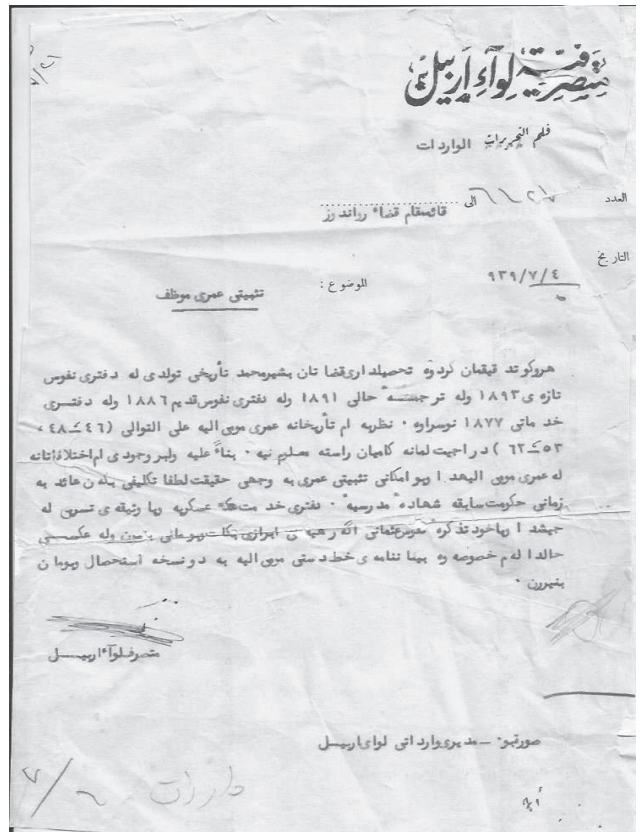 متصرفية لواء اربيل
قلم التحريرات الواردات
العدد الى
قائممقام قضاء رواندز
التاريخ ٩٣٩/٧/٤
الموضوع : تثبيتى عمرى موظف
هروكو تدقيقمان كردوه تحصيلدارى قضاتان بشيرمحمد تأريخى تولدى له دفترى نفوس
تازه ى ١٨٩٣ وله ترجمه حالى ١٨٩١ وله دفترى نفوس قديم ١٨٨٦ وله دفترى
خدماتى ١٨٧٧ نوسراوه ٠ نظربه ام تأريخانه عمرى مومى اليه على التوالى (٤٦ــ٤٨،
٥٣ــ٦٢ ) دراجيت لمانه كاميان راسته معلوم نيه ٠ بناءً عليه ولبر وجودى ام اختلافاتانه
له عمرى مومى اليهدا وبو امكانى تثبيتى عمرى به وجهى حقيقت لطفا تكليفى بكەن عائد به
زمانى حكومت سابقه شهاده مدرسيه ٠ دفترى خدمت عسكريه ويا وثيقه ى تسريح له
جيشدا وياخود تذكره عثمانى اگه رهيه ى ابرازى بكات وبومانى وله عكسى
حالدا لەم خصوصه وه بياننامه ى خط دستى مومى اليه به دو نسخه استحصال وبومان
بنيرن ٠
متصرف لواء اربيــل
صورتبو ــ مديرى وارداتى لواى اربيــل
واردات